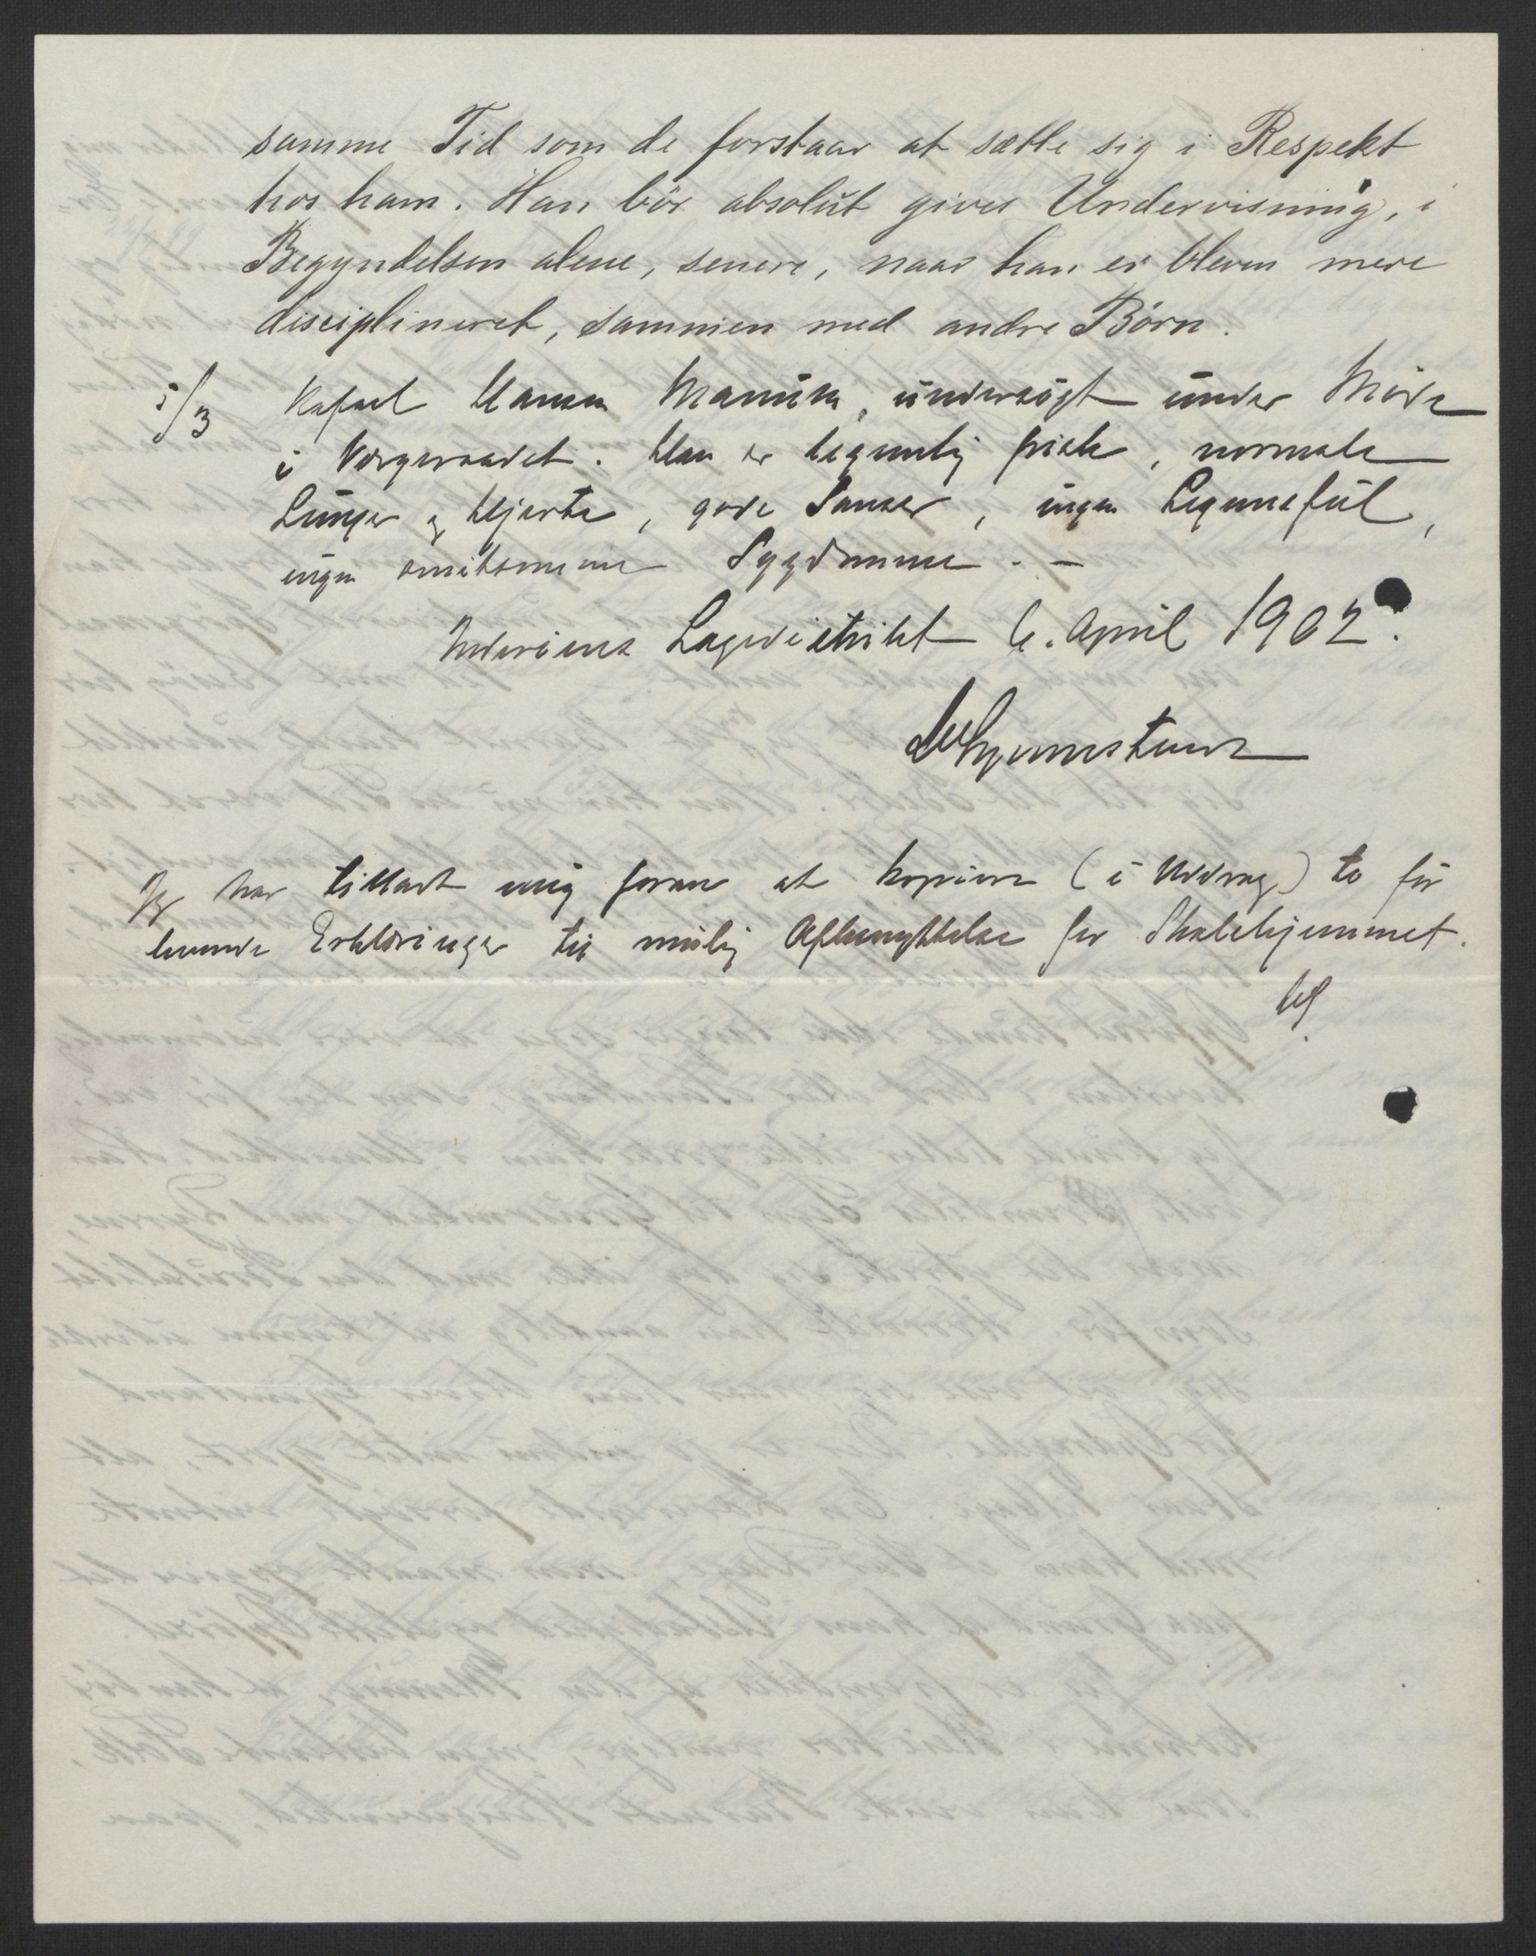 samme Tid som de forstaar at sætte sig i Respekt
hos ham. Han bör absolut gives Undervisning, i
Begyndelsen alene, senere, naar han er bleven mere
disciplineret, sammen med andre Børn.
5/3 Rafael Hansen undersögt under Möde
i Vergeraadet. Han er legemlig frisk, normale
Lunger og Hjerte, gode Sanser, ingen Legemsfeil,
ingen smitsomme Sygdomme. -
Inderöens Lægedistrikt 6. April 1902.
Jeg har tilladt mig foran at kopiere (i Uddrag) to for
levende Erklæringer til mulig Afbenyttelse for Skolehjemmet.